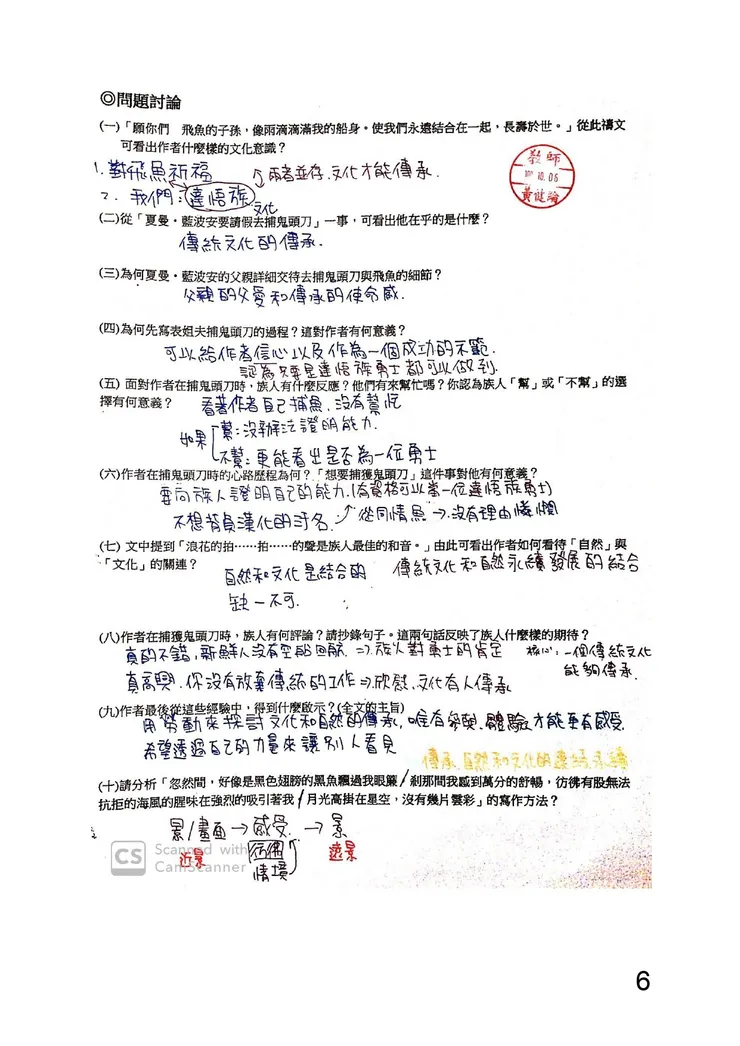 ◎問題討論
(一)「願你們　飛魚的子孫，像雨滴滴滿我的船身。使我們永遠結合在一起，長壽於世。」從此禱文
可看出作者什麼樣的文化意識？
1. 對飛魚祈福　兩者並存，文化才能傳承．
2. 我們：達悟族 文化
教師
10.06
黃健諭
(二)從「夏曼・藍波安要請假去捕鬼頭刀」一事，可看出他在乎的是什麼？
傳統文化的傳承．
(三)為何夏曼・藍波安的父親詳細交待去捕鬼頭刀與飛魚的細節？
父親的父愛和傳承的使命感．
(四)為何先寫表姐夫捕鬼頭刀的過程？這對作者有何意義？
可以給作者信心以及作為一個成功的示範．
認為只要是達悟族勇士都可以做到．
(五) 面對作者在捕鬼頭刀時，族人有什麼反應？他們有來幫忙嗎？你認為族人「幫」或「不幫」的選
擇有何意義？　看著作者自己捕魚，沒有幫忙
如果 幫：沒辦法證明能力．
不幫：更能看出是否為一位勇士
(六)作者在捕鬼頭刀時的心路歷程為何？「想要捕獲鬼頭刀」這件事對他有何意義？
要向族人證明自己的能力．(有資格可以當一位達悟族勇士)
不想背負漢化的汙名．　從同情魚→沒有理由憐憫
(七) 文中提到「浪花的拍……拍……的聲是族人最佳的和音。」由此可看出作者如何看待「自然」與
「文化」的關連？　自然和文化是結合的　傳統文化和自然永續發展的結合
缺一不可．
(八)作者在捕獲鬼頭刀時，族人有何評論？請抄錄句子。這兩句話反映了族人什麼樣的期待？
真的不錯，新鮮人沒有空船回航 => 族人對勇士的肯定　核心：一個傳統文化
真高興，你沒有放棄傳統的工作 => 欣慰、文化有人傳承　能夠傳承．
(九)作者最後從這些經驗中，得到什麼啟示？(全文的主旨)
用勞動來探討文化和自然的傳承，唯有參與、體驗，才能更有感受．
希望透過自己的力量來讓別人看見
傳承、自然和文化的連結、永續
(十)請分析「忽然間，好像是黑色翅膀的黑魚飄過我眼簾/剎那間我感到萬分的舒暢，彷彿有股無法
抗拒的海風的腥味在強烈的吸引著我/月光高掛在星空，沒有幾片雲彩」的寫作方法？
景/畫面→感受→景
近景　遠景
情境
CS Scanned with
CamScanner
6